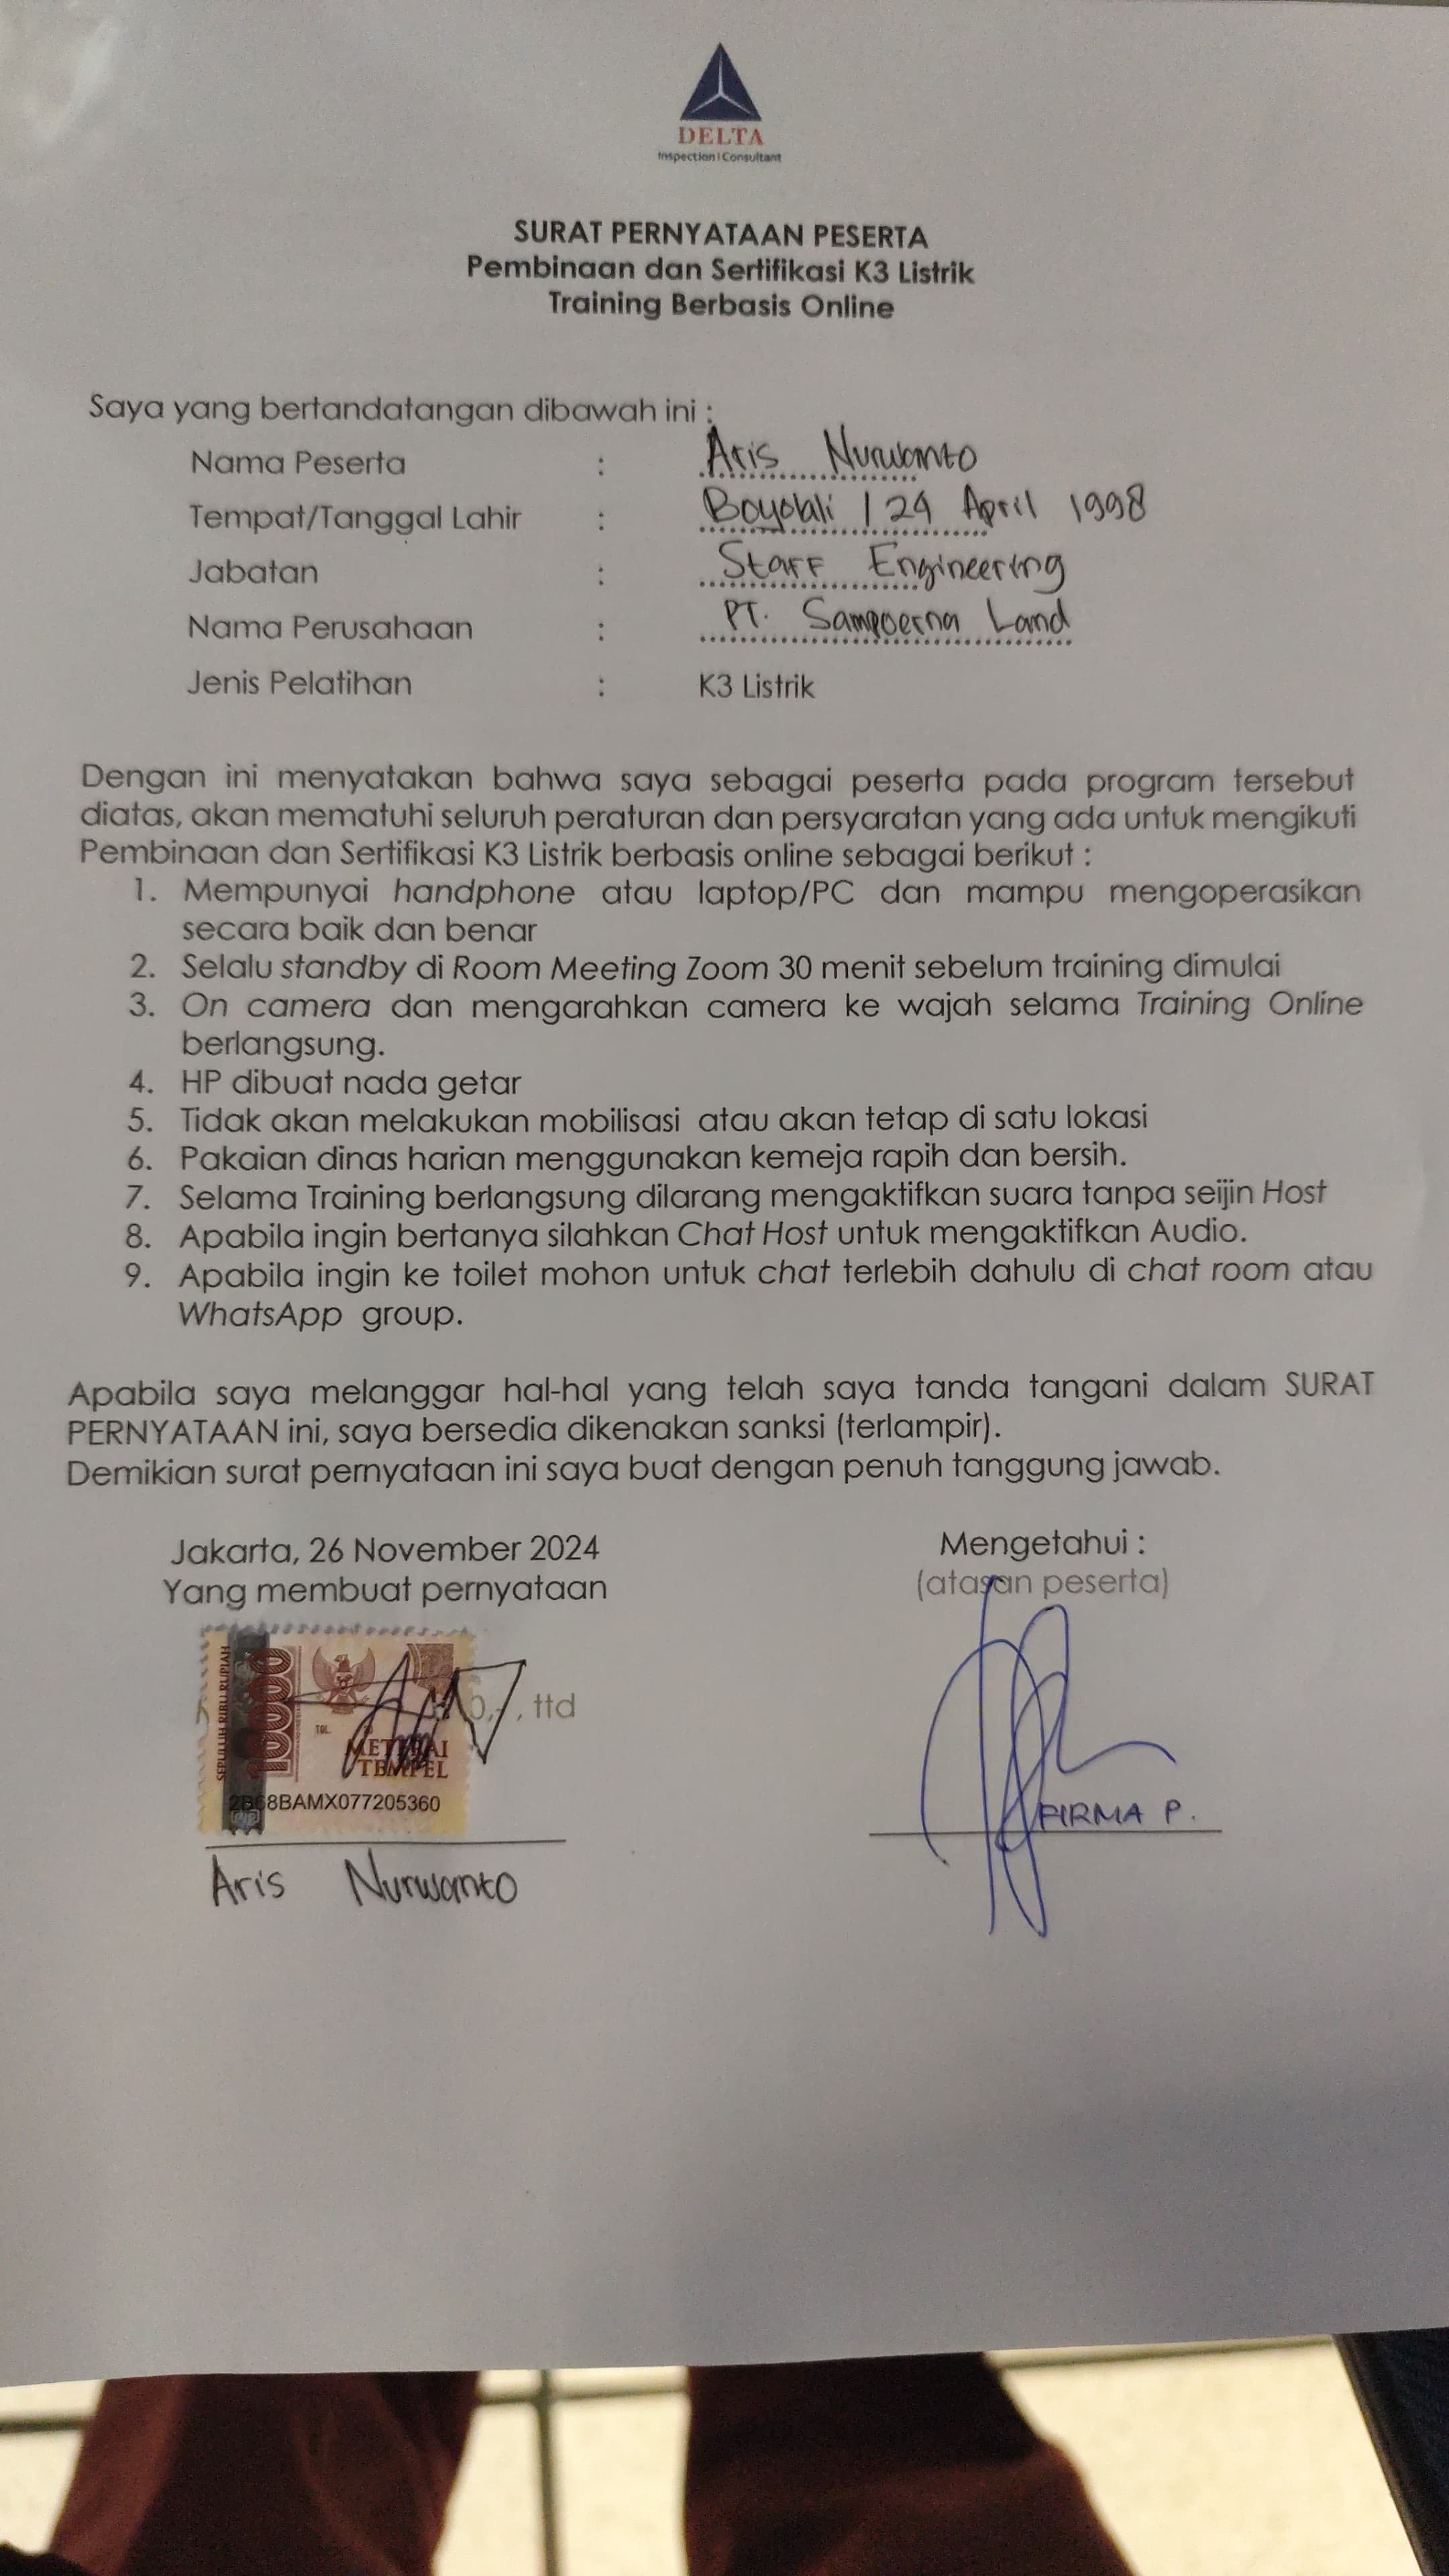 DELTA
Inspection | Consultant
SURAT PERNYATAAN PESERTA
Pembinaan dan Sertifikasi K3 Listrik
Training Berbasis Online
Saya yang bertandatangan dibawah ini :
Nama Peserta : Aris Nurwanto
Tempat/Tanggal Lahir : Boyolali / 24 April 1998
Jabatan : Staff Engineering
Nama Perusahaan : PT. Sampoerna Land
Jenis Pelatihan : K3 Listrik
Dengan ini menyatakan bahwa saya sebagai peserta pada program tersebut
diatas, akan mematuhi seluruh peraturan dan persyaratan yang ada untuk mengikuti
Pembinaan dan Sertifikasi K3 Listrik berbasis online sebagai berikut :
1. Mempunyai handphone atau laptop/PC dan mampu mengoperasikan
secara baik dan benar
2. Selalu standby di Room Meeting Zoom 30 menit sebelum training dimulai
3. On camera dan mengarahkan camera ke wajah selama Training Online
berlangsung.
4. HP dibuat nada getar
5. Tidak akan melakukan mobilisasi atau akan tetap di satu lokasi
6. Pakaian dinas harian menggunakan kemeja rapih dan bersih.
7. Selama Training berlangsung dilarang mengaktifkan suara tanpa seijin Host
8. Apabila ingin bertanya silahkan Chat Host untuk mengaktifkan Audio.
9. Apabila ingin ke toilet mohon untuk chat terlebih dahulu di chat room atau
WhatsApp group.
Apabila saya melanggar hal-hal yang telah saya tanda tangani dalam SURAT
PERNYATAAN ini, saya bersedia dikenakan sanksi (terlampir).
Demikian surat pernyataan ini saya buat dengan penuh tanggung jawab.
Jakarta, 26 November 2024
Yang membuat pernyataan
Mengetahui :
(atasan peserta)
SEPULUH RIBU RUPIAH
10000
TGL.
0,-, ttd
METERAI
TEMPEL
2B68BAMX077205360
FIRMA P.
Aris Nurwanto